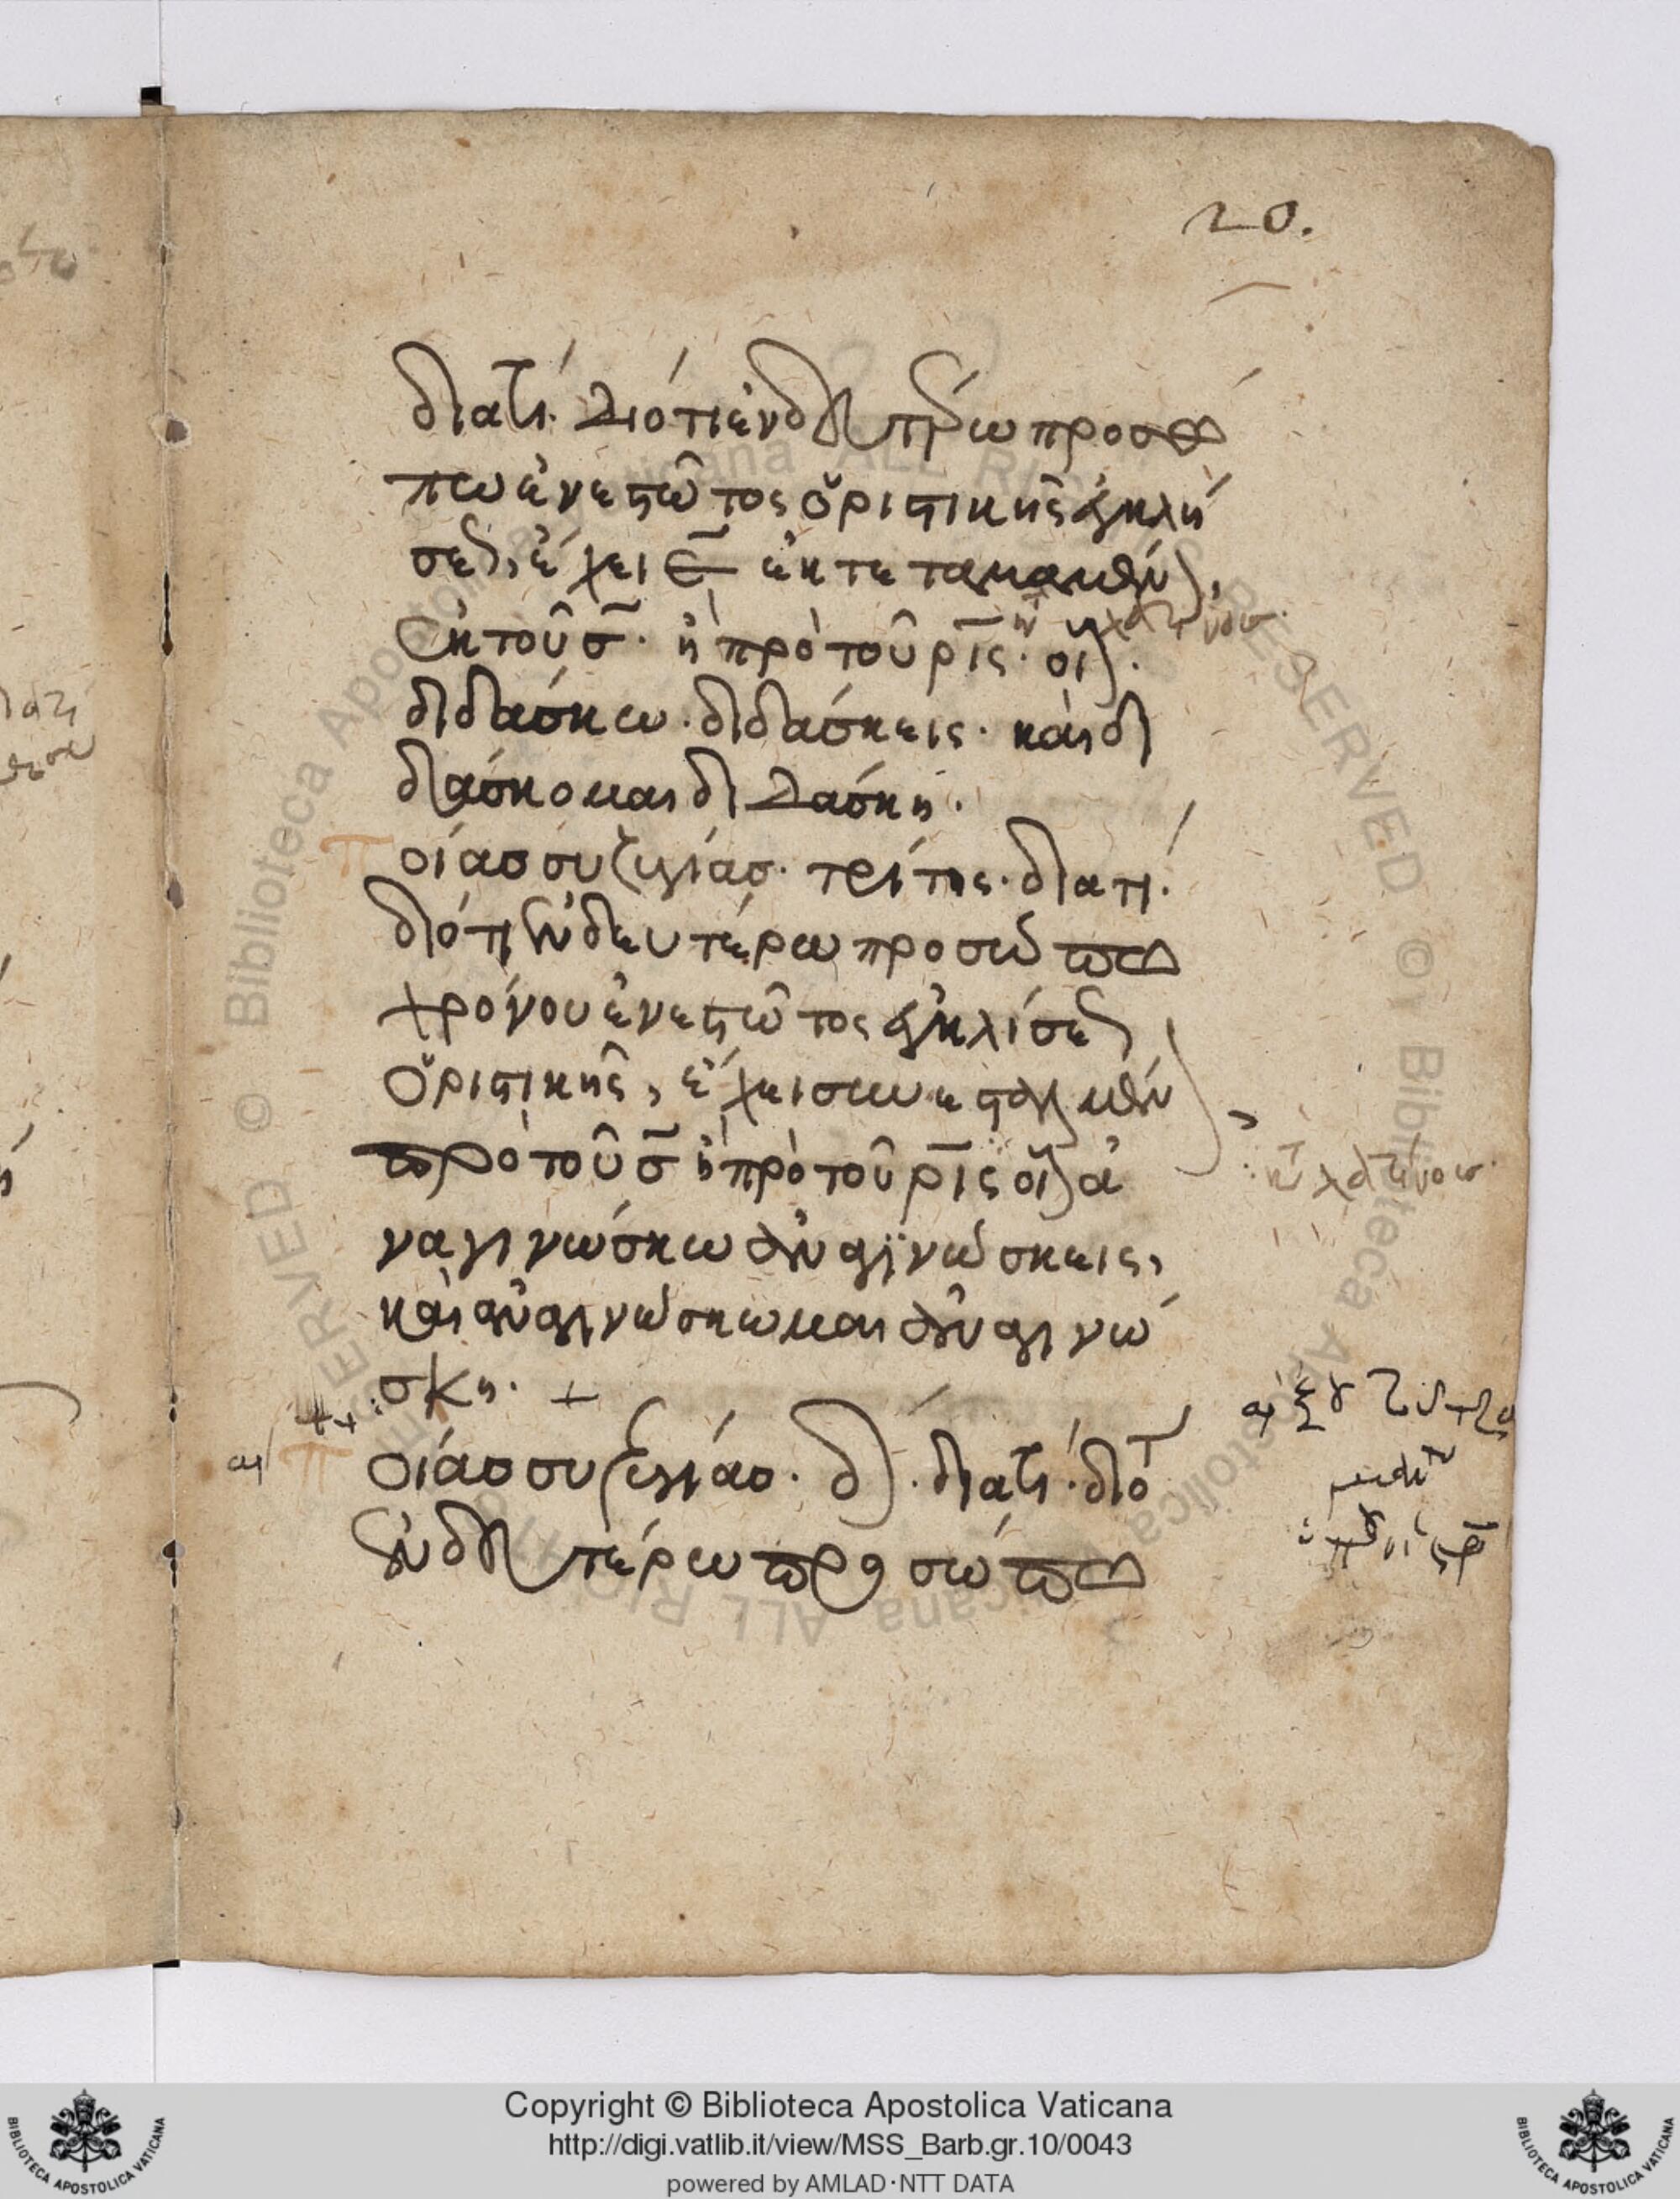 20.
διατί· διότι ἐν δευτέρω προσω
πω ἐνεστῶτος ὁριστικῆς ἐγκλή
σεως, ἔχει ε̄ ἐκτεταμαμένον,
ἐκ τοῦ σ̄· ἢ πρὸ τοῦ ρις· οἷον·
διδάσκω· διδάσκεις· καὶ δι
δάσκομαι διδάσκη·
Ποίασ συζυγίασ· τρίτης· διατί·
διότι ἐν δευτέρω προσώπω
χρόνου ἐνεστῶτος ἐγκλίσεως
ὁριστικῆς, ἔχει συνεσταλμένον
πρὸ τοῦ σ̄ ἢ πρὸ τοῦ ρις οἷον ἀ
ναγινώσκω ἀναγινώσκεις,
καὶ ἀναγινώσκωμαι ἀναγινώ
σκη· +
Ποίασ συζυγίασ· δ· διατί· διότι
ἐν δευτέρω προσώπω
Copyright © Biblioteca Apostolica Vaticana
http://digi.vatlib.it/view/MSS_Barb.gr.10/0043
powered by AMLAD·NTT DATA
BIBLIOTECA APOSTOLICA VATICANA
BIBLIOTECA APOSTOLICA VATICANA